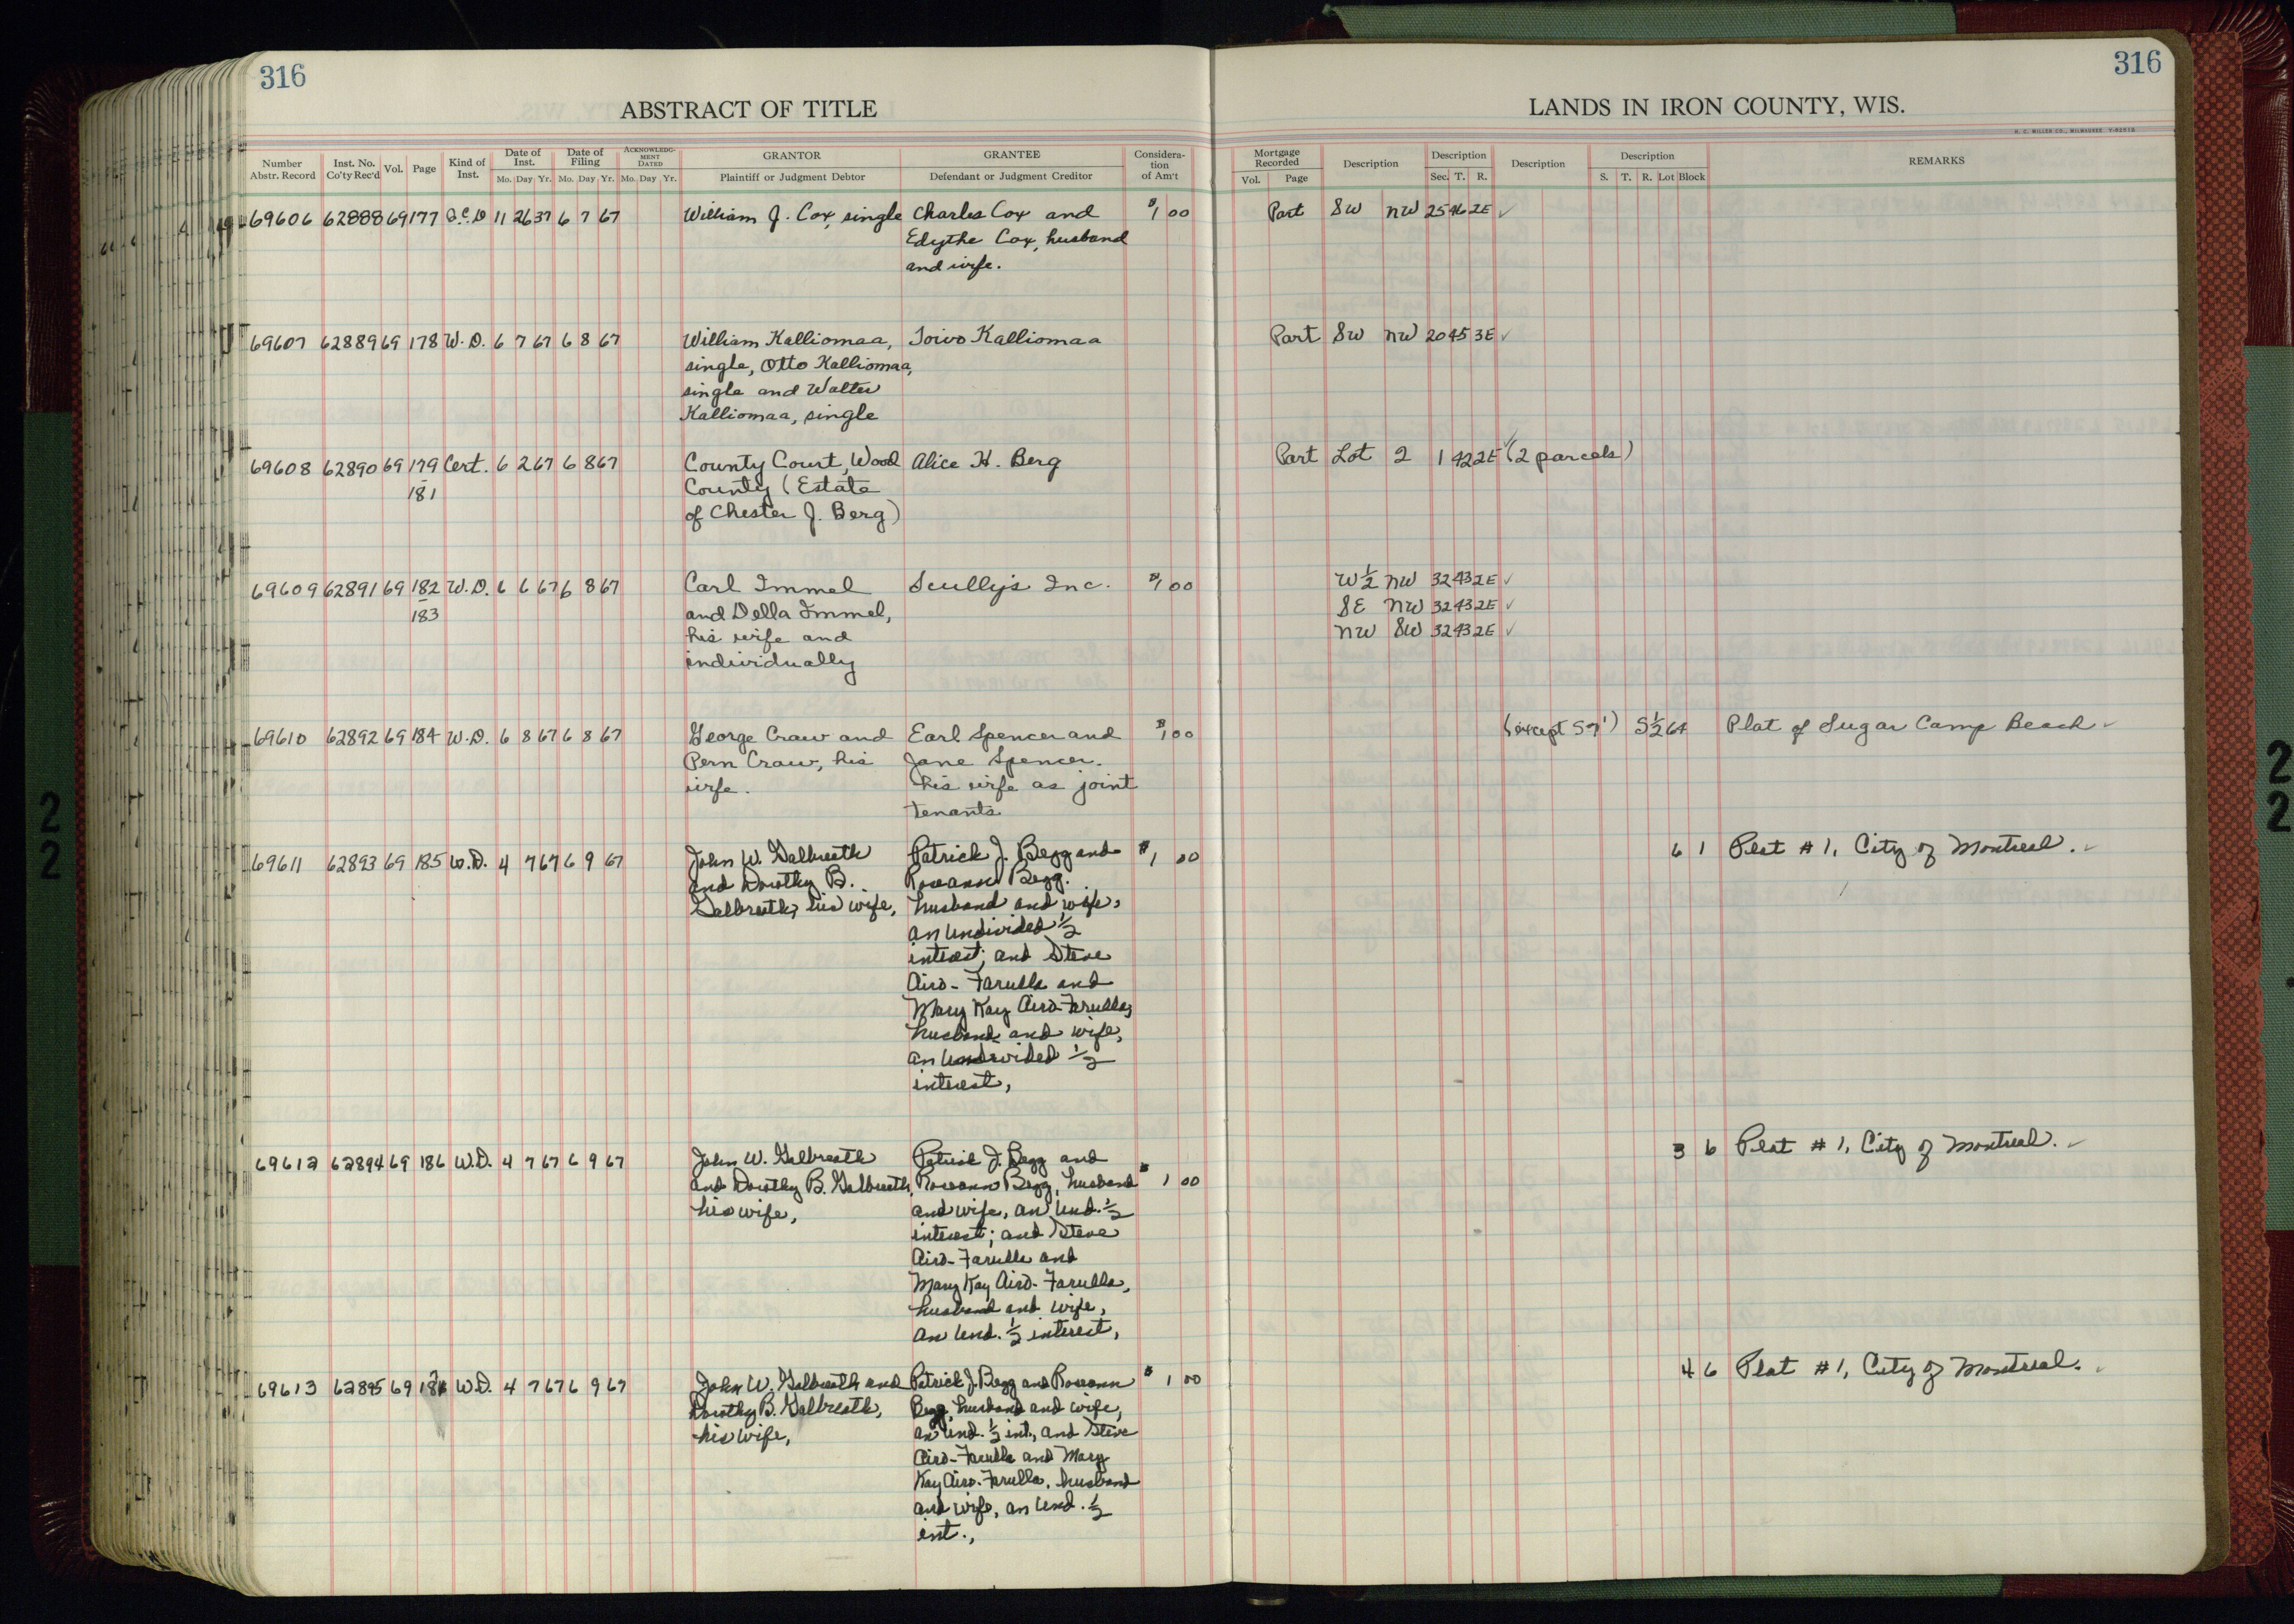 316
316
ABSTRACT OF TITLE
LANDS IN IRON COUNTY, WIS.
H. C. MILLER CO., MILWAUKEE
Number Abstr. Record Inst. No. Co'ty Rec'd Vol. Page Kind of Inst. Date of Inst. Mo. Day Yr. Date of Filing Mo. Day Yr. ACKNOWLEDGMENT DATED Mo. Day Yr. GRANTOR Plaintiff or Judgment Debtor GRANTEE Defendant or Judgment Creditor Consideration of Am't
Mortgage Recorded Vol. Page Description Description Sec. T. R. Description Description S. T. R. Lot Block REMARKS
69606 62888 69 177 Q.C.D 11 26 37 6 7 67 William J. Cox, single Charles Cox and $1 00 Part SW NW 25 46 2E ✓
Edythe Cox, husband
and wife.
69607 62889 69 178 W.D. 6 7 67 6 8 67 William Kalliomaa, Toivo Kalliomaa Part SW NW 20 45 3E ✓
single, Otto Kalliomaa,
single and Walter
Kalliomaa, single
69608 62890 69 179 Cert. 6 2 67 6 8 67 County Court, Wood Alice H. Berg Part Lot 2 1 42 2E ✓ (2 parcels)
181 County (Estate
of Chester J. Berg)
69609 62891 69 182 W.D. 6 6 67 6 8 67 Carl Immel Scully's Inc. $1 00 W½ NW 32 43 2E ✓
183 and Della Immel, SE NW 32 43 2E ✓
his wife and NW SW 32 43 2E ✓
individually
69610 62892 69 184 W.D. 6 8 67 6 8 67 George Craw and Earl Spencer and $1 00 (except S 7') S½ 64 Plat of Sugar Camp Beach ✓
Pern Craw, his Jane Spencer.
wife. his wife as joint
tenants
69611 62893 69 185 W.D. 4 7 67 6 9 67 John W. Galbreath Patrick J. Begg and $1 00 6 1 Plat #1, City of Montreal. ✓
and Dorothy B. Roseann Begg.
Galbreath, his wife, husband and wife,
an undivided ½
interest; and Steve
Airo-Farulla and
Mary Kay Airo-Farulla,
husband and wife,
an undivided ½
interest,
69612 62894 69 186 W.D. 4 7 67 6 9 67 John W. Galbreath Patrick J. Begg and 3 6 Plat #1, City of Montreal. ✓
and Dorothy B. Galbreath, Roseann Begg, husband $1 00
his wife, and wife, an und. ½
interest; and Steve
Airo-Farulla and
Mary Kay Airo-Farulla,
husband and wife,
an und. ½ interest,
69613 62895 69 187 W.D. 4 7 67 6 9 67 John W. Galbreath and Patrick J. Begg and Roseann $1 00 4 6 Plat #1, City of Montreal. ✓
Dorothy B. Galbreath, Begg, husband and wife,
his wife, an und. ½ int., and Steve
Airo-Farulla and Mary
Kay Airo-Farulla, husband
and wife, an und. ½
int.,
22
22